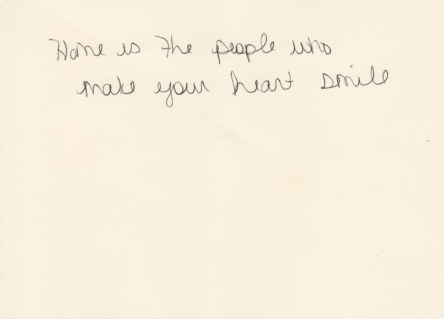 Home is the people who
make your heart smile